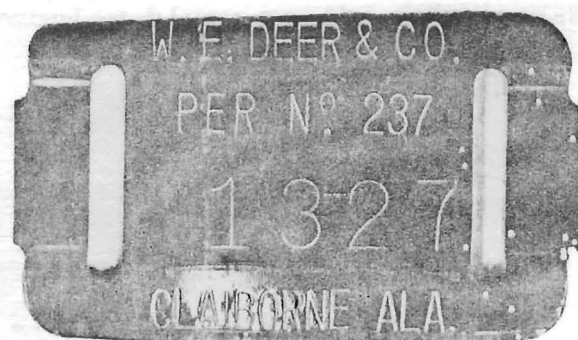 W. E. DEER & CO.
PER Nº. 237
1327
CLAIBORNE ALA.